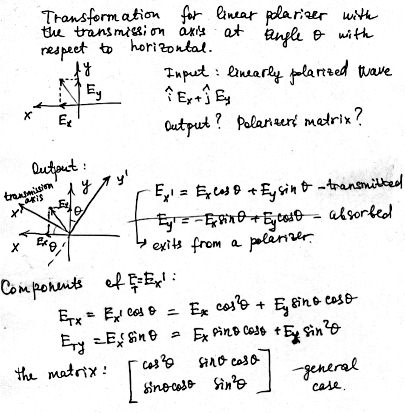 Transformation for linear polarizer with
the transmission axis at angle θ with
respect to horizontal.
y
Ey
Ex
x
Input : linearly polarized wave
î Ex + ĵ Ey
Output? Polarizers matrix?
Output :
transmission
axis
x'
y
y'
Ey
θ
Ex
θ
x
Ex' = Ex cosθ + Ey sinθ - transmitted
Ey' = -Ex sinθ + Ey cosθ - absorbed
exits from a polarizer.
Components of E_T = Ex' :
E_Tx = Ex' cosθ = Ex cos²θ + Ey sinθ cosθ
E_Ty = Ex' sinθ = Ex sinθ cosθ + Ey sin²θ
the matrix : [ cos²θ sinθ cosθ
sinθ cosθ sin²θ ] - general
case.